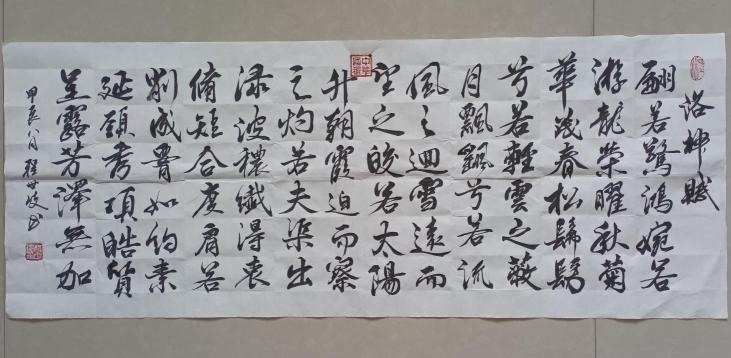 洛神賦
翩若驚鴻婉若
游龍榮曜秋菊
華茂春松髣髴
兮若輕雲之蔽
月飄飖兮若流
風之迴雪遠而
望之皎若太陽
升朝霞迫而察
之灼若夫渠出
渌波穠纖得衷
脩短合度肩若
削成腰如約素
延頸秀項皓質
呈露芳澤無加
甲辰八月程世书